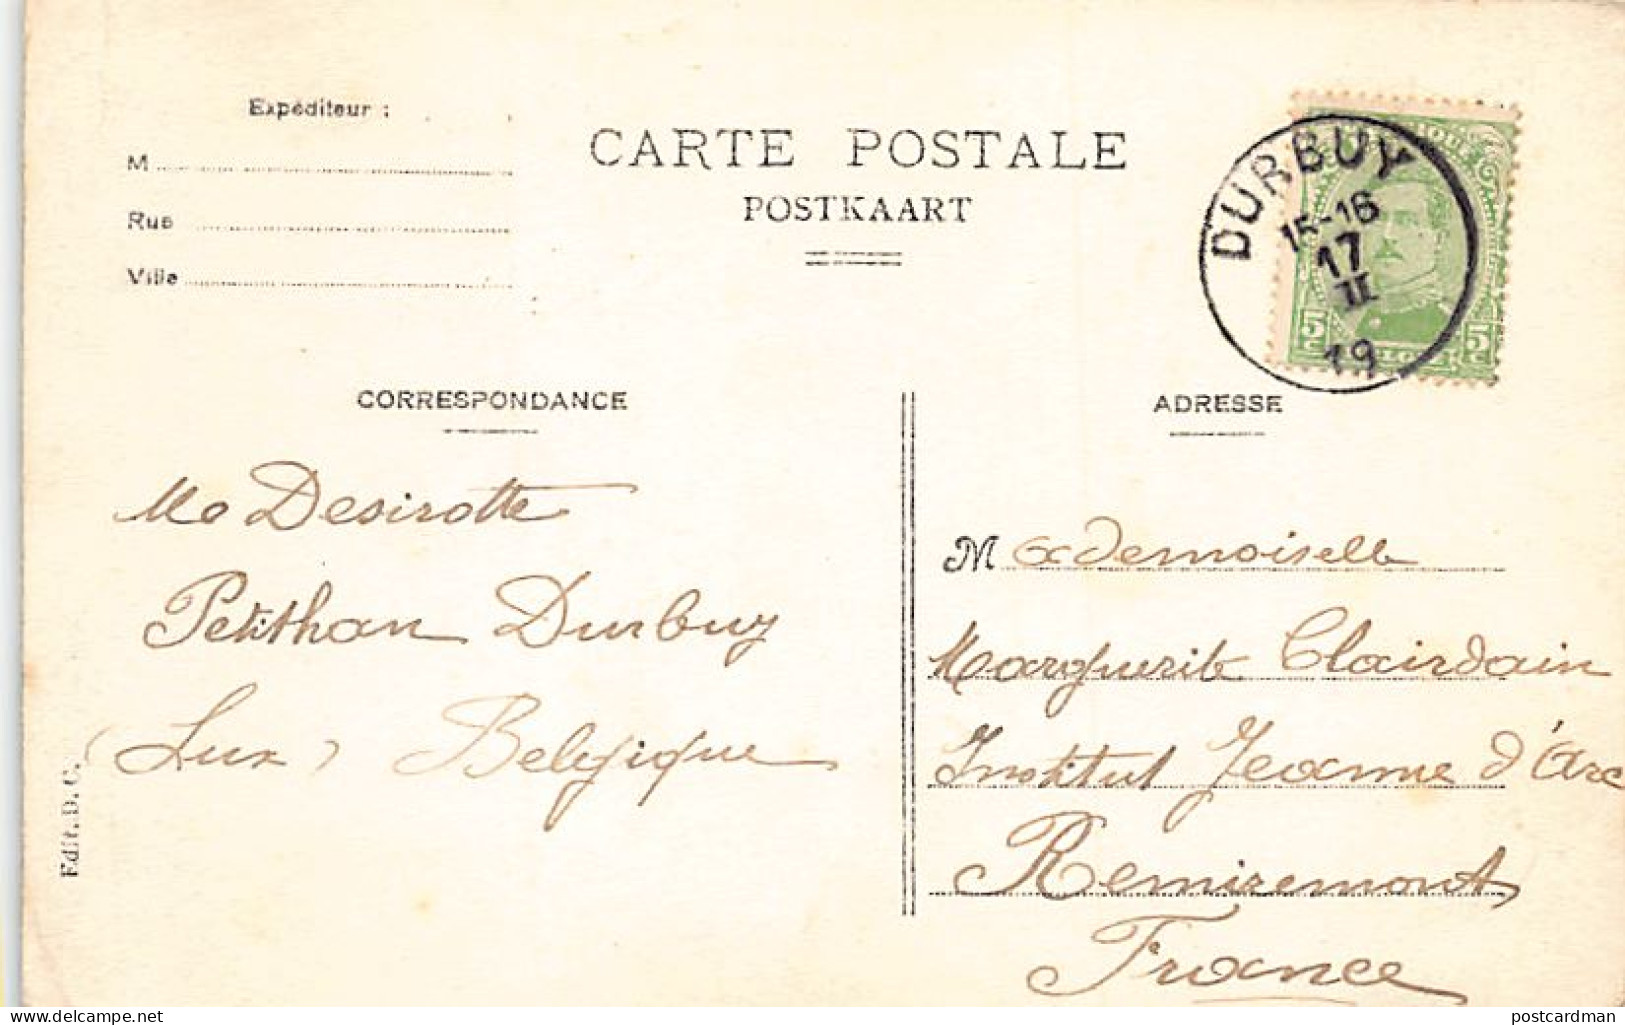 Expéditeur :
M
Rue
Ville
CARTE POSTALE
POSTKAART
DURBUY
15-16
17
II
19
5c 5c
CORRESPONDANCE
ADRESSE
Desirotte
Petithan Durbuy
(Lux) Belgique
Mademoiselle
Marguerite Clairdain
Institut Jeanne d'Arc
Remiremont
France
Edit. D. C.
https://www.delcampe.net
postcardman